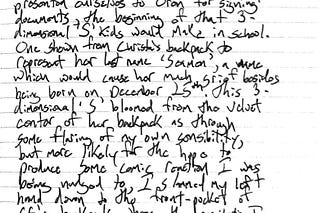 presented ourselves to Oran for signing
documents, the beginning of that 3-
dimensional S, kids would make in school.
One shown from Christi's backpack to
represent her last name 'Semen', a name
which would cause her much grief besides
being born on December 25th. This 3-
dimensional 'S' bloomed from the velvet
center of her backpack as through
some flaring of my own sensibility,
but more likely for the hype to
produce some comic reaction I was
being nudged to, I my left
hand down to the front-pocket of